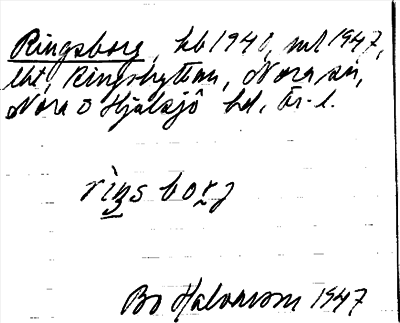 Ringsborg, hb 1940, ml 1947,
lht, Ringshyttan, Nora sn,
Nora o Hjulsjö hd, Ör. l.
rìŋs borj
Bo Halvarson 1947